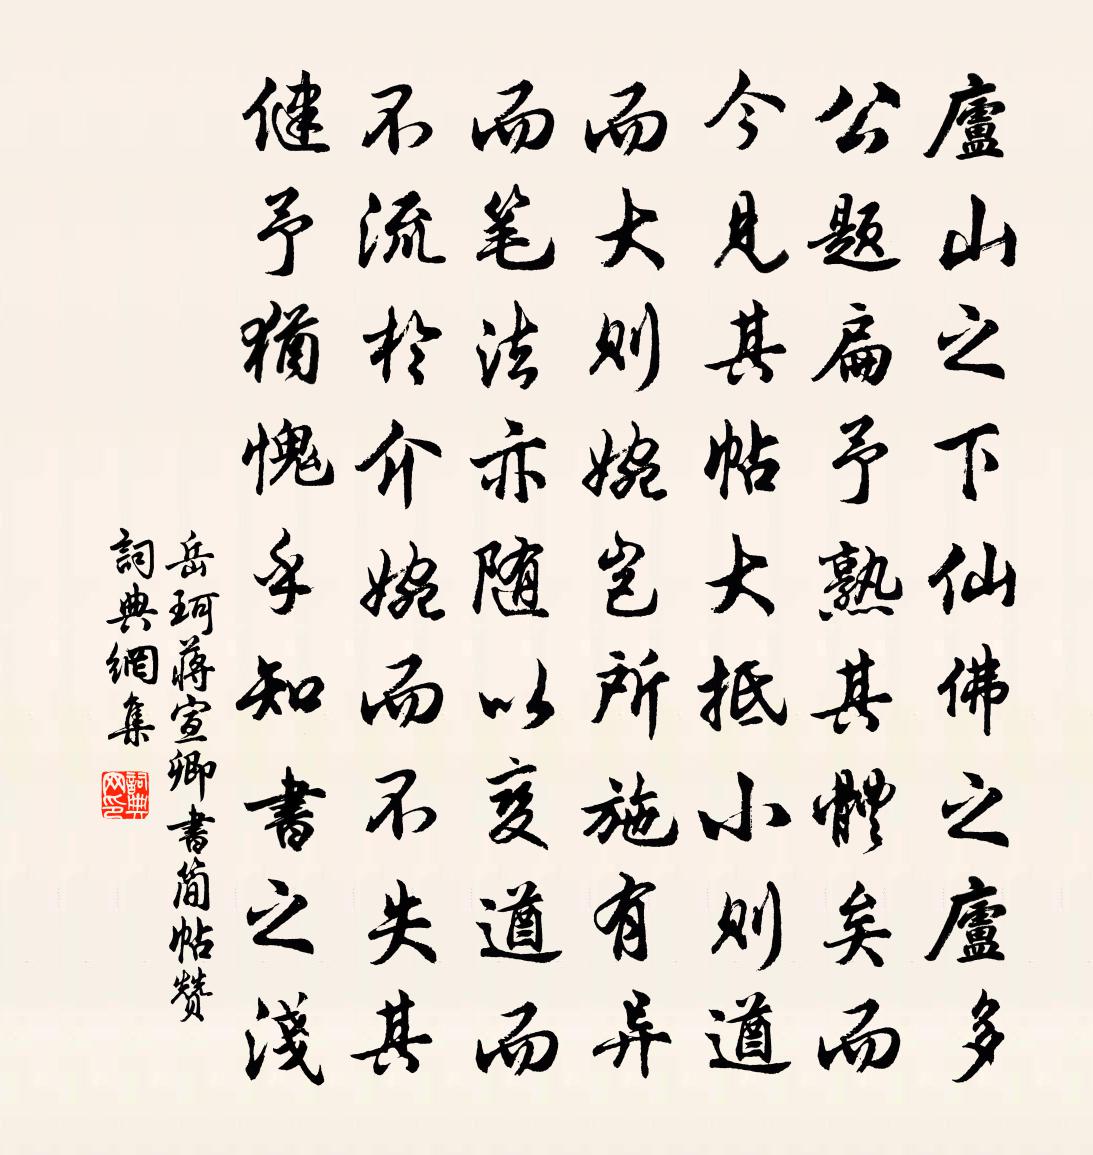 廬山之下仙佛之廬多
公题扁予熟其體矣而
今見其帖大抵小則遒
而大則婉豈所施有异
而笔法亦随以变遒而
不流於介婉而不失其
健予猶愧乎知書之淺
岳珂蔣宣卿書简帖赞
詞典網集
詞典网印